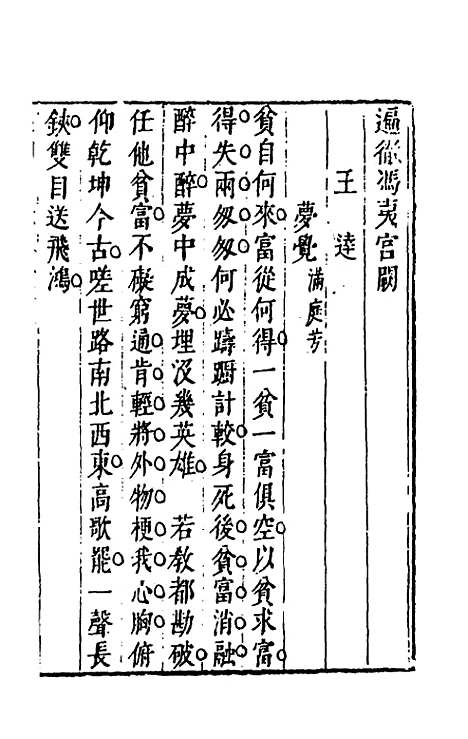 遍徹馮夷宫闕
王逵
夢覺 滿庭芳
貧自何來○富從何得○一貧一富俱空○以貧求富○
得失兩匆匆○何必躊躇計較○身死後○貧富消融○
醉中醉○夢中成夢○埋没幾英雄○ 若教都勘破○
任他貧富○不礙窮通○肯輕將外物○梗我心胸○俯
仰乾坤今古○嗟世路南北西東○高歌罷○一聲長
鋏○雙目送飛鴻○